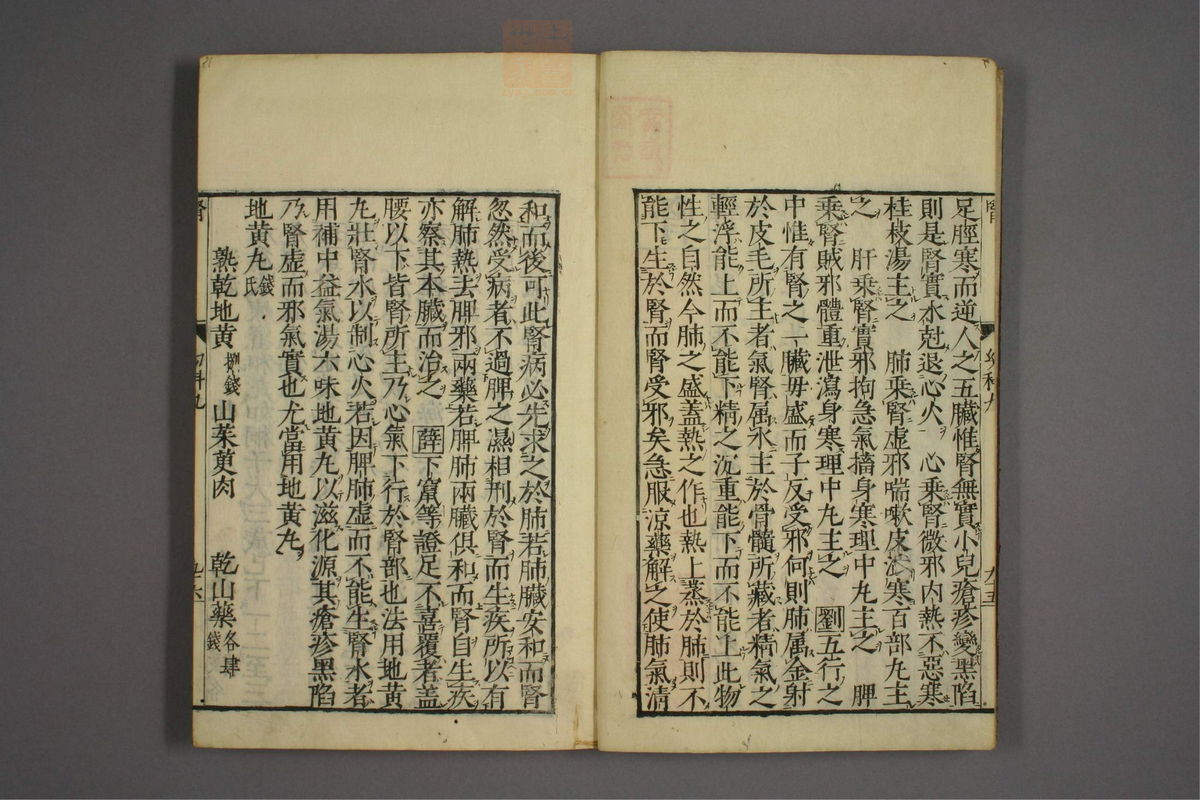 足脛寒而逆人之五臓惟腎無實小兒瘡疹變黒陷
則是腎實水尅退心火　心乗腎微邪内熱不惡寒
桂枝湯主之　肺乗腎虚邪喘嗽皮澁寒百部丸主
之　肝乗腎實邪拘急氣搐身寒理中丸主之　脾
乗腎賊邪體重泄瀉身寒理中丸主之　劉五行之
中惟有腎之一臓毋盛而子反受邪何則肺属金射
於皮毛所主者氣腎属水主於骨髓所藏者精氣之
輕浮能上而不能下精之沉重能下而不能上此物
性之自然今肺之盛蓋熱之作也熱上蒸於肺則不
能下生於腎而腎受邪矣急服涼藥解之使肺氣清
腎
幼科九
九五
和而後可此腎病必先求之於肺若肺臓安和而腎
忽然受病者不過脾之濕相刑於腎而生疾所以有
解肺熱去脾邪兩藥若脾肺兩臓倶和而腎自生疾
亦察其本臓而治之　薛下竄等證足不喜覆者蓋
腰以下皆腎所主乃心氣下行於腎部也法用地黄
丸壯腎水以制心火若因脾肺虚而不能生腎水者
用補中益氣湯六味地黄丸以滋化源其瘡疹黒陷
乃腎虚而邪氣實也尤當用地黄丸
地黄丸錢氏
熟乾地黄捌錢　山茱萸肉　乾山藥各肆錢
腎
幼科九
九六